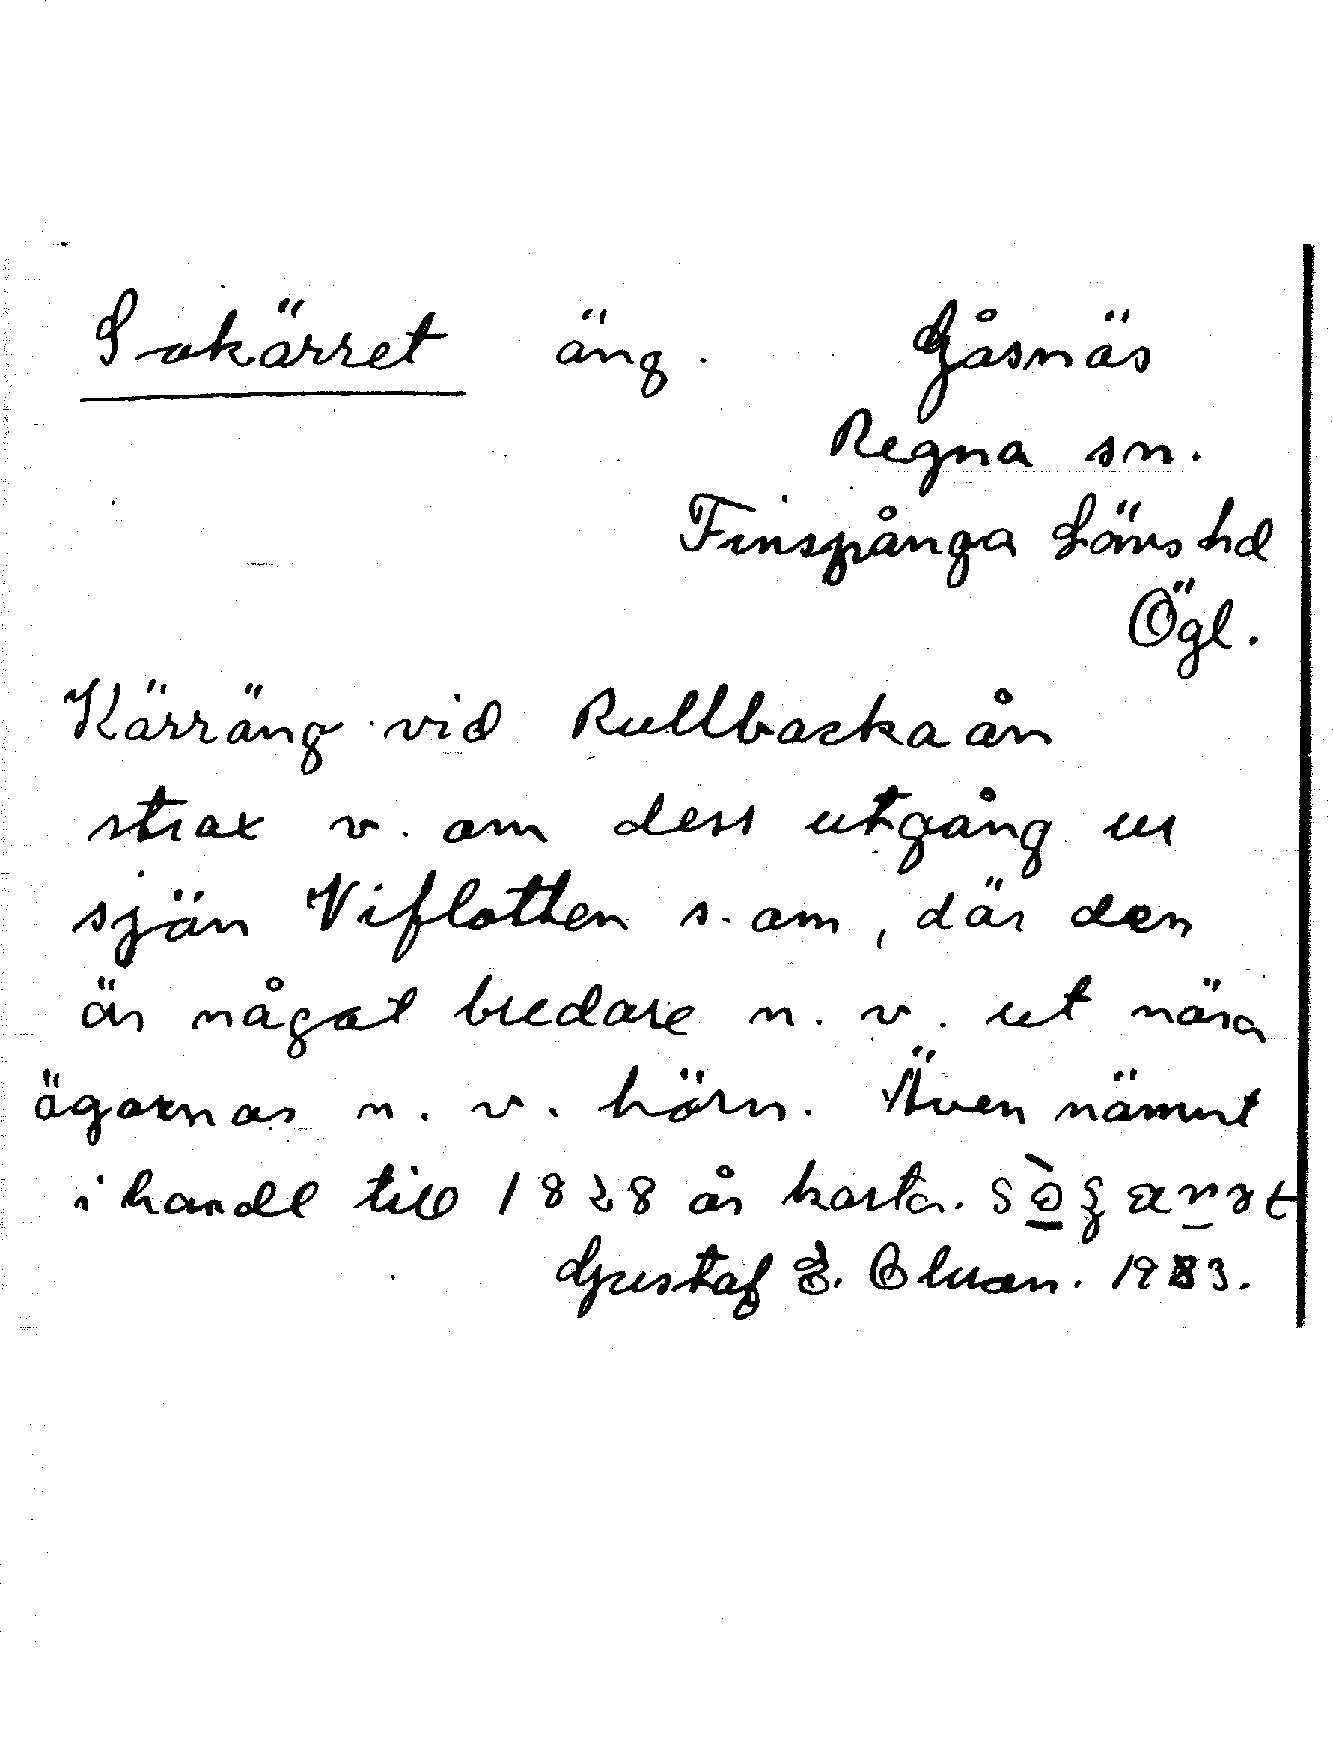 Sokärret äng. Gåsnäs
Regna sn.
Finspånga Läns hd
Ögl.
Kärräng vid Rullbacka ån
strax v. om dess utgång ur
sjön Viflotten s. om, där den
är något bredare n. v. ut nära
ägornas n. v. hörn. Även nämnt
i handl till 1828 års karta.
Gustaf E. 1983.